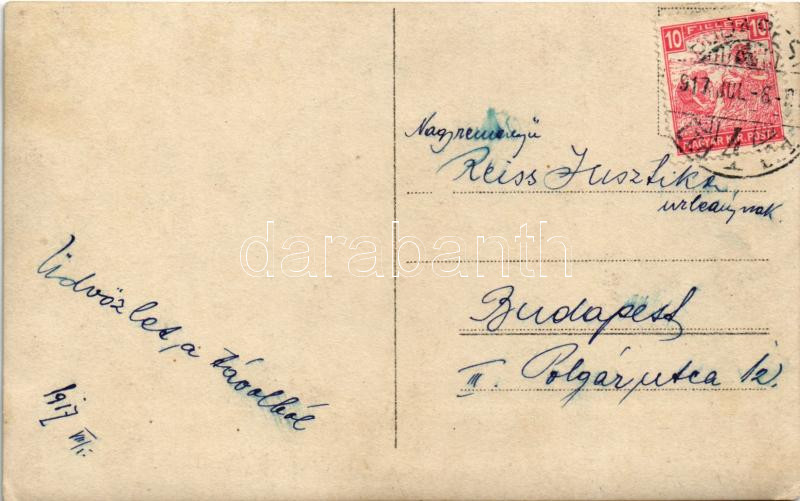 Üdvözlet a távolból
1917 VII/1.
10 FILLÉR 10
MAGYAR KIR. POSTA
917 JUL -6.
Nagyreményű
Reiss Jusztika
urleánynak
Budapest
III. Polgár utca 12.
darabanth